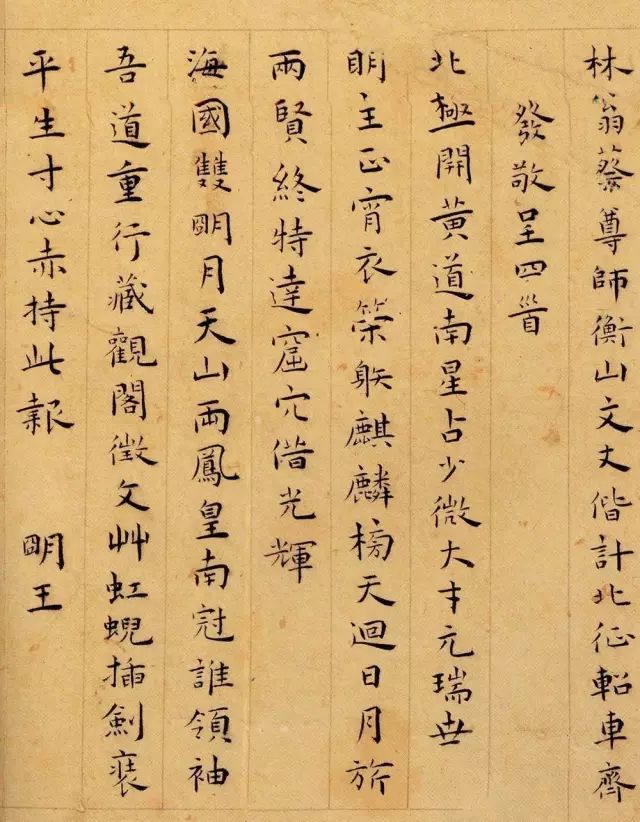 林翁蔡尊師衡山文丈偕計北征軺車齊
發敬呈四首
北極開黃道南星占少微大才元瑞世
明主正宵衣榮躲麒麟榜天迴日月旂
兩賢終特達窟穴偕光輝
海國雙明月天山兩鳳皇南冠誰領袖
吾道重行藏觀閣徵文艸虹蜺插劍裝
平生寸心赤持此報 明王